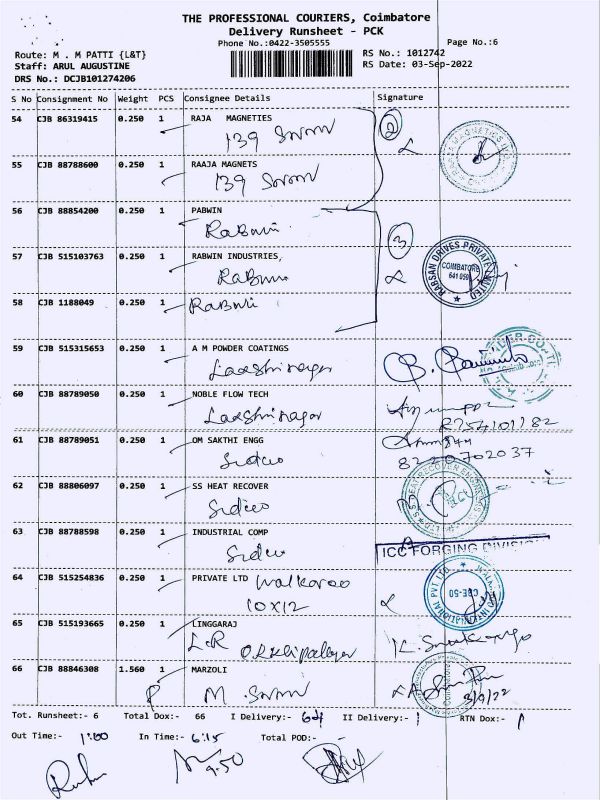 THE PROFESSIONAL COURIERS, Coimbatore
Delivery Runsheet - PCK
Phone No.:0422-3505555
Page No.:6
Route: M . M PATTI {L&T}
RS No.: 1012742
Staff: ARUL AUGUSTINE
RS Date: 03-Sep-2022
DRS No.: DCJB101274206
S No Consignment No Weight PCS Consignee Details Signature
54 CJB 86319415 0.250 1 RAJA MAGNETIES
139
2
55 CJB 88788600 0.250 1 RAAJA MAGNETS
139
56 CJB 88854200 0.250 1 PABWIN
Rabwin
3
57 CJB 515103763 0.250 1 RABWIN INDUSTRIES,
Rabwin
RABSAN DRIVES PRIVATE LIMITED
COIMBATORE
641 059
58 CJB 1188049 0.250 1
Rabwin
59 CJB 515315653 0.250 1 A M POWDER COATINGS
Laxshminagar
60 CJB 88789050 0.250 1 NOBLE FLOW TECH
Laxshminagar
61 CJB 88789051 0.250 1 OM SAKTHI ENGG
Sidco
8220702037
62 CJB 88806097 0.250 1 SS HEAT RECOVER
Sidco
63 CJB 88788598 0.250 1 INDUSTRIAL COMP
Sidco
ICC FORGING DIVISION
64 CJB 515254836 0.250 1 PRIVATE LTD Walkaroo
10x12
CBE-50
65 CJB 515193665 0.250 1 LINGGARAJ
L&R
66 CJB 88846308 1.560 1 MARZOLI
P M.
3/9/22
Tot. Runsheet:- 6 Total Dox:- 66 I Delivery:- 64 II Delivery:- 1 RTN Dox:- 1
Out Time:- 1:00 In Time:- 6:15 Total POD:-
9.50